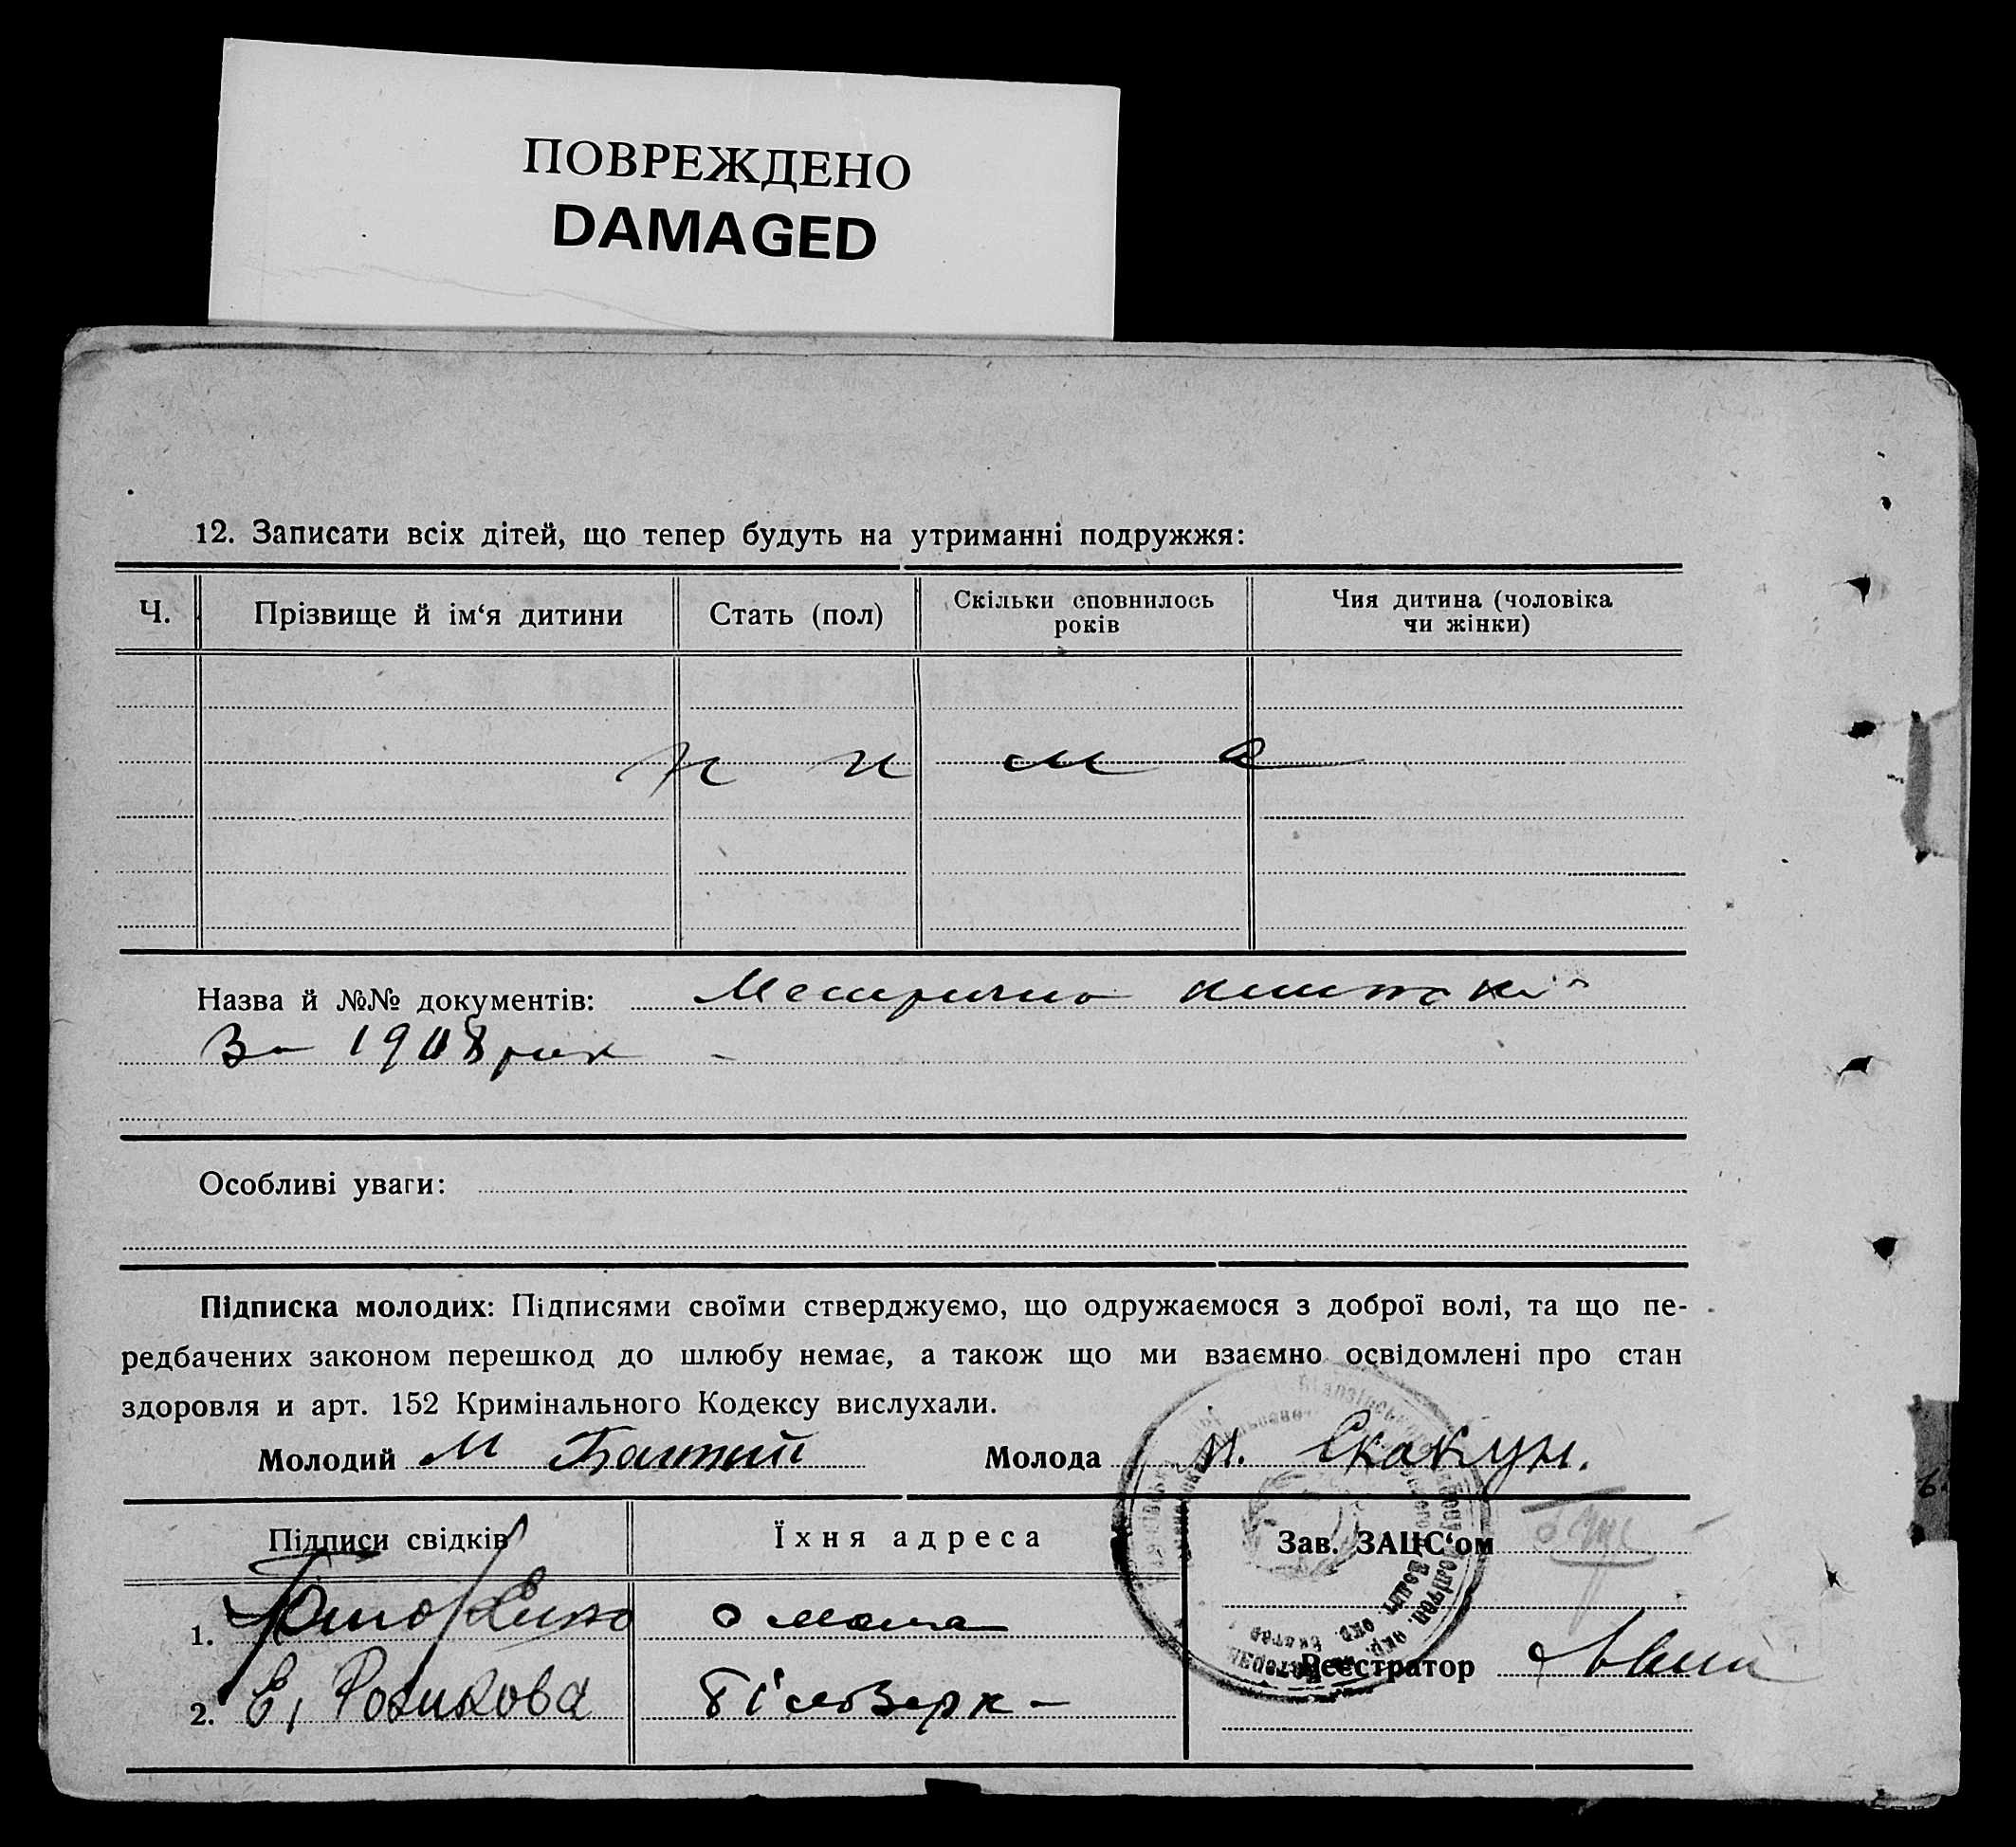 ПОВРЕЖДЕНО
DAMAGED
12. Записати всіх дітей, що тепер будуть на утриманні подружжя:
Ч. Прізвище й ім‘я дитини Стать (пол) Скільки сповнилось років Чия дитина (чоловіка чи жінки)
н и м а
Назва й №№ документів: Метрична
За 1908 рик
Особливі уваги:
Підписка молодих: Підписями своїми стверджуємо, що одружаємося з доброї волі, та що пе-
редбачених законом перешкод до шлюбу немає, а також що ми взаємно освідомлені про стан
здоровля и арт. 152 Кримінального Кодексу вислухали.
Молодий М Молода М. Скакун.
Підписи свідків Їхня адреса Зав. ЗАЦС‘ом
1.
Реєстратор
2. Е,